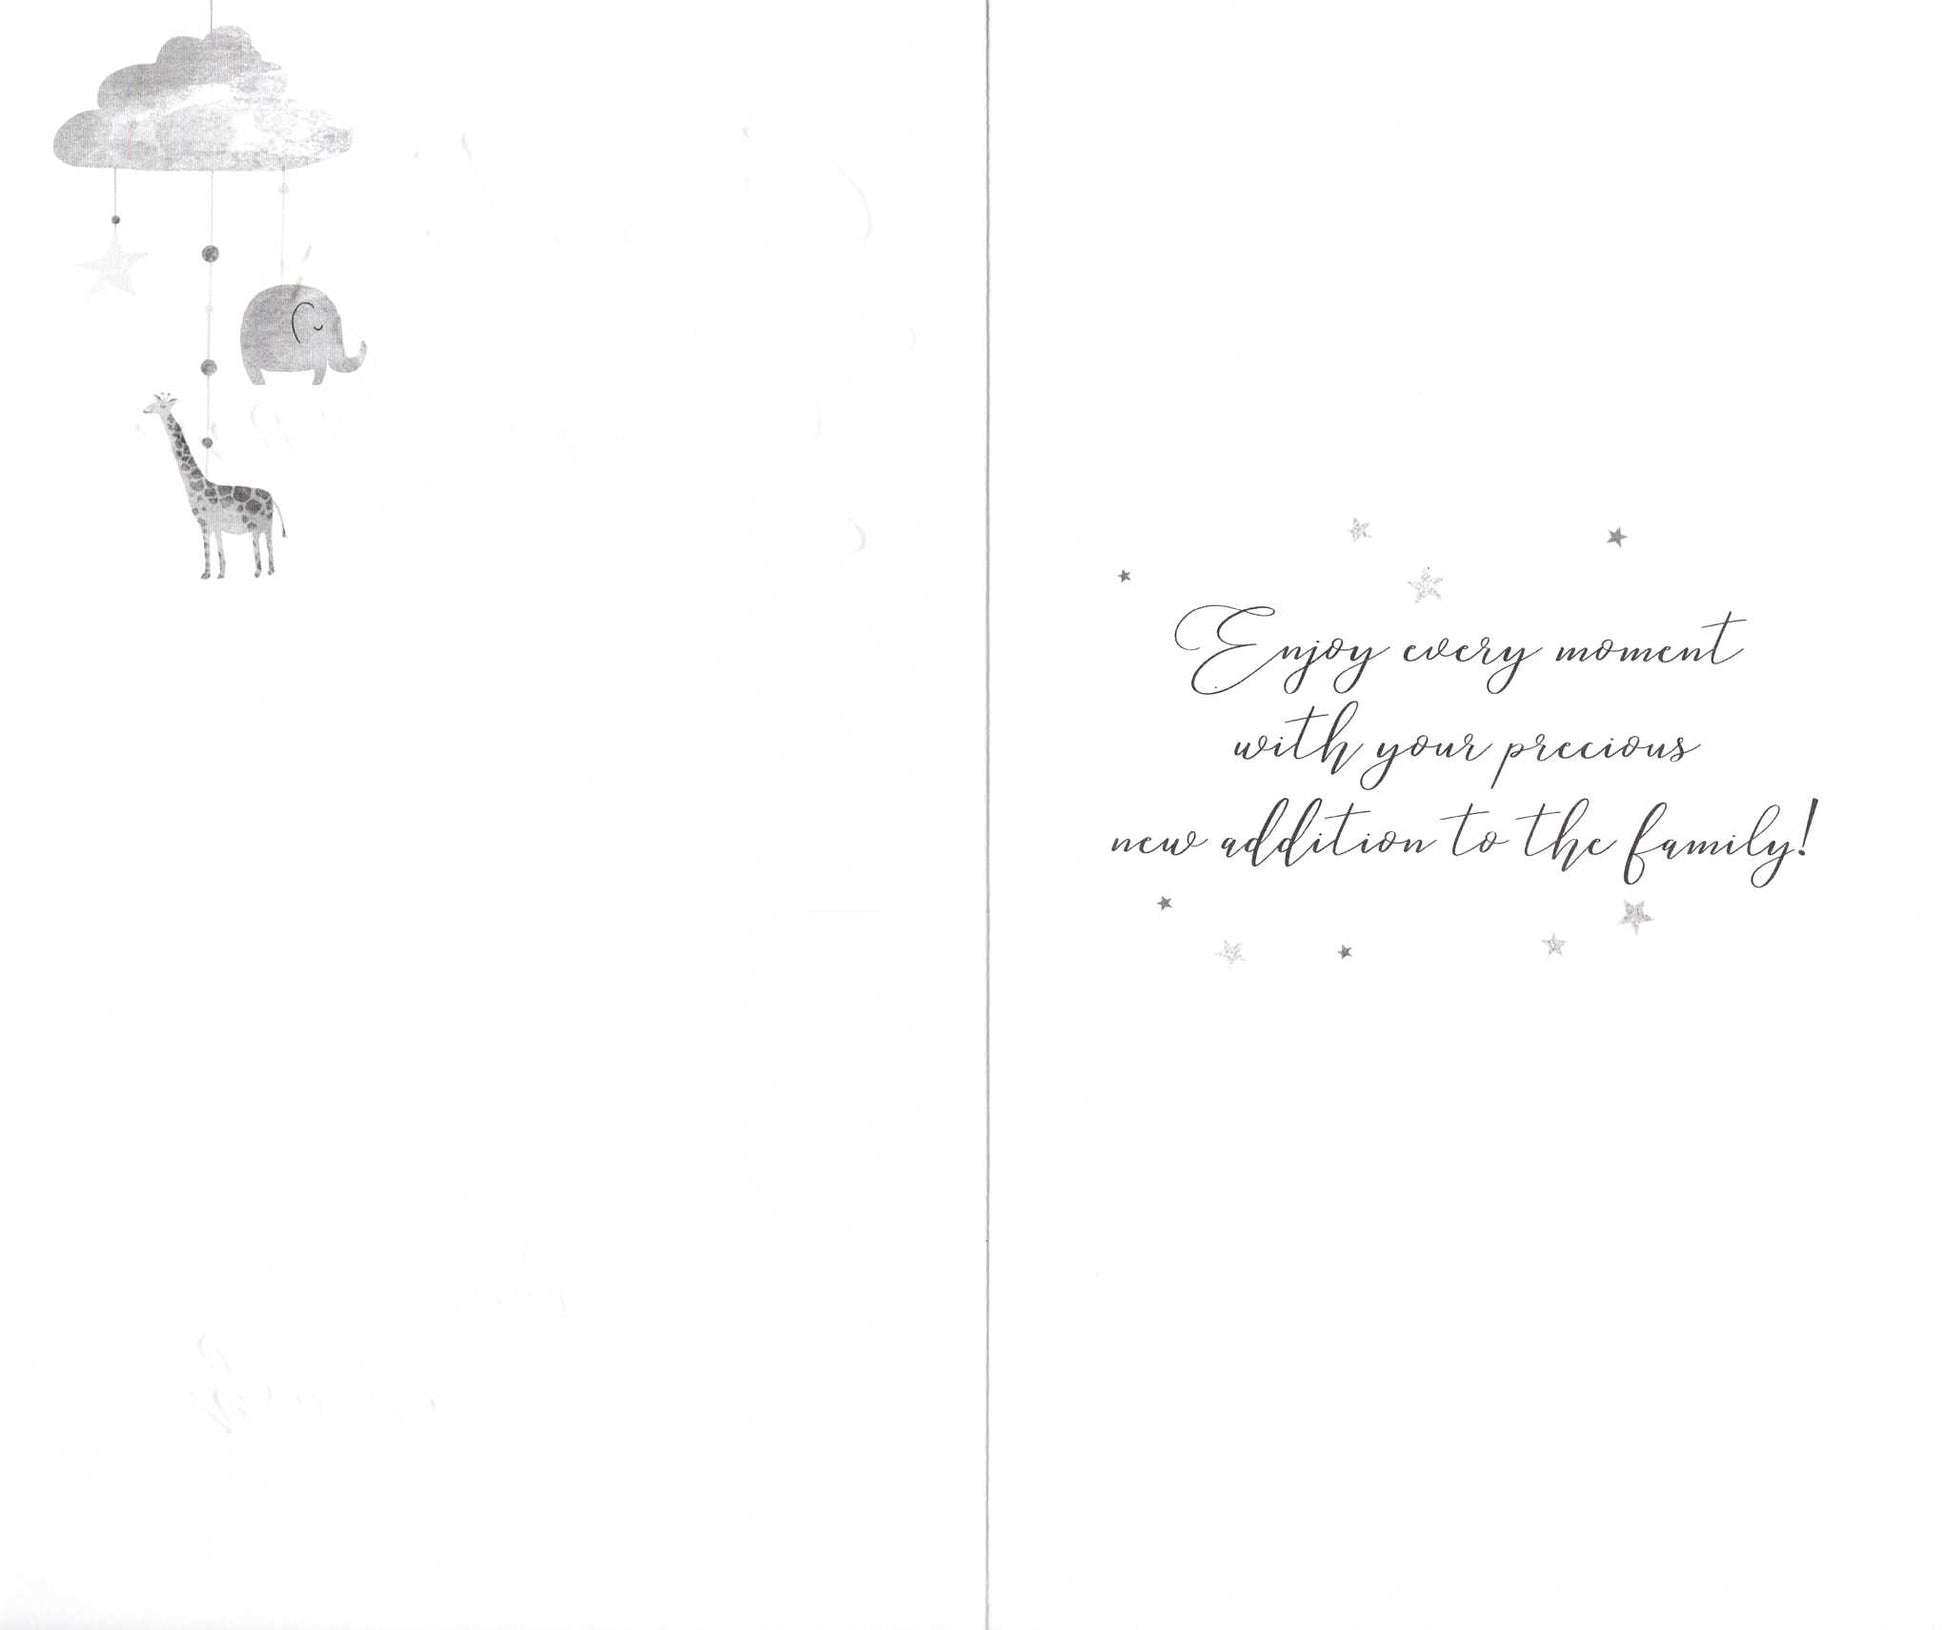 Enjoy every moment
with your precious
new addition to the family!